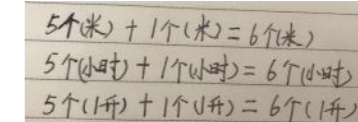 5个(米) + 1个(米) = 6个(米)
5个(小时) + 1个(小时) = 6个(小时)
5个(1升) + 1个(1升) = 6个(1升)